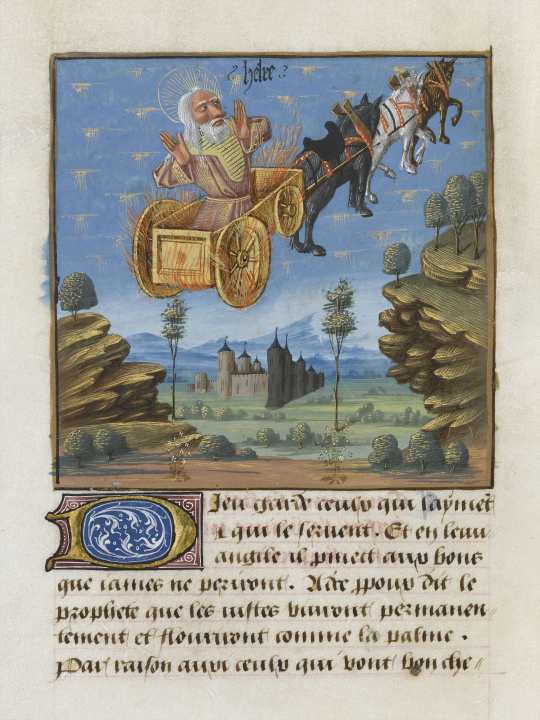 helee
Dieu garde ceulx qui laymēt
⁊ qui le seruent. Et en leuu
angile il pmect aux bons
que iames ne periront. A ce ppoux dit le
prophete que les iustes viuront permanen
tement et flouriront comme la palme.
Par raison auxi ceulx qui vont bon che